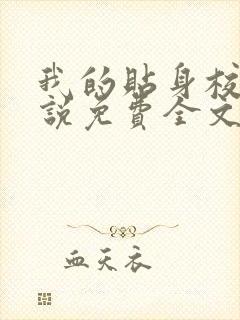 我的贴身校
說免費全文
血天衣